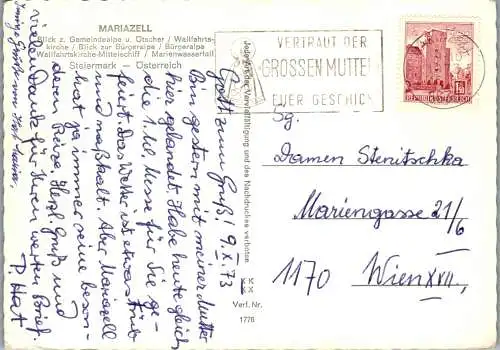 MARIAZELL
Blick z. Gemeindealpe u. Ötscher / Wallfahrts-
kirche / Blick zur Bürgeralpe / Bürgeralpe
Wallfahrtskirche-Mittelschiff / Marienwasserfall
Steiermark — Österreich
Gott zum Gruß! 9.X.73
Bin gestern mit meiner Mutter
hier gelandet. Habe heute gleich
die 1. hl. Messe für Sie ge-
feiert. Das Wetter ist etwas trüb
und naßkalt. Aber Mariazell
hat ja immer seine beson-
deren Reize. Herzl. Gruß und
vielen Dank für Ihren werten Brief.
P. Hat
Innige Grüße von
Jede Art der Vervielfältigung und des Nachdruckes verboten
KK
XX
Verl. Nr.
1776
VERTRAUT DER
GROSSEN MUTTER
EUER GESCHICK
REPUBLIK ÖSTERREICH
Sg.
Damen Stenitschka
Mariengasse 21/6
1170 Wien XVII.